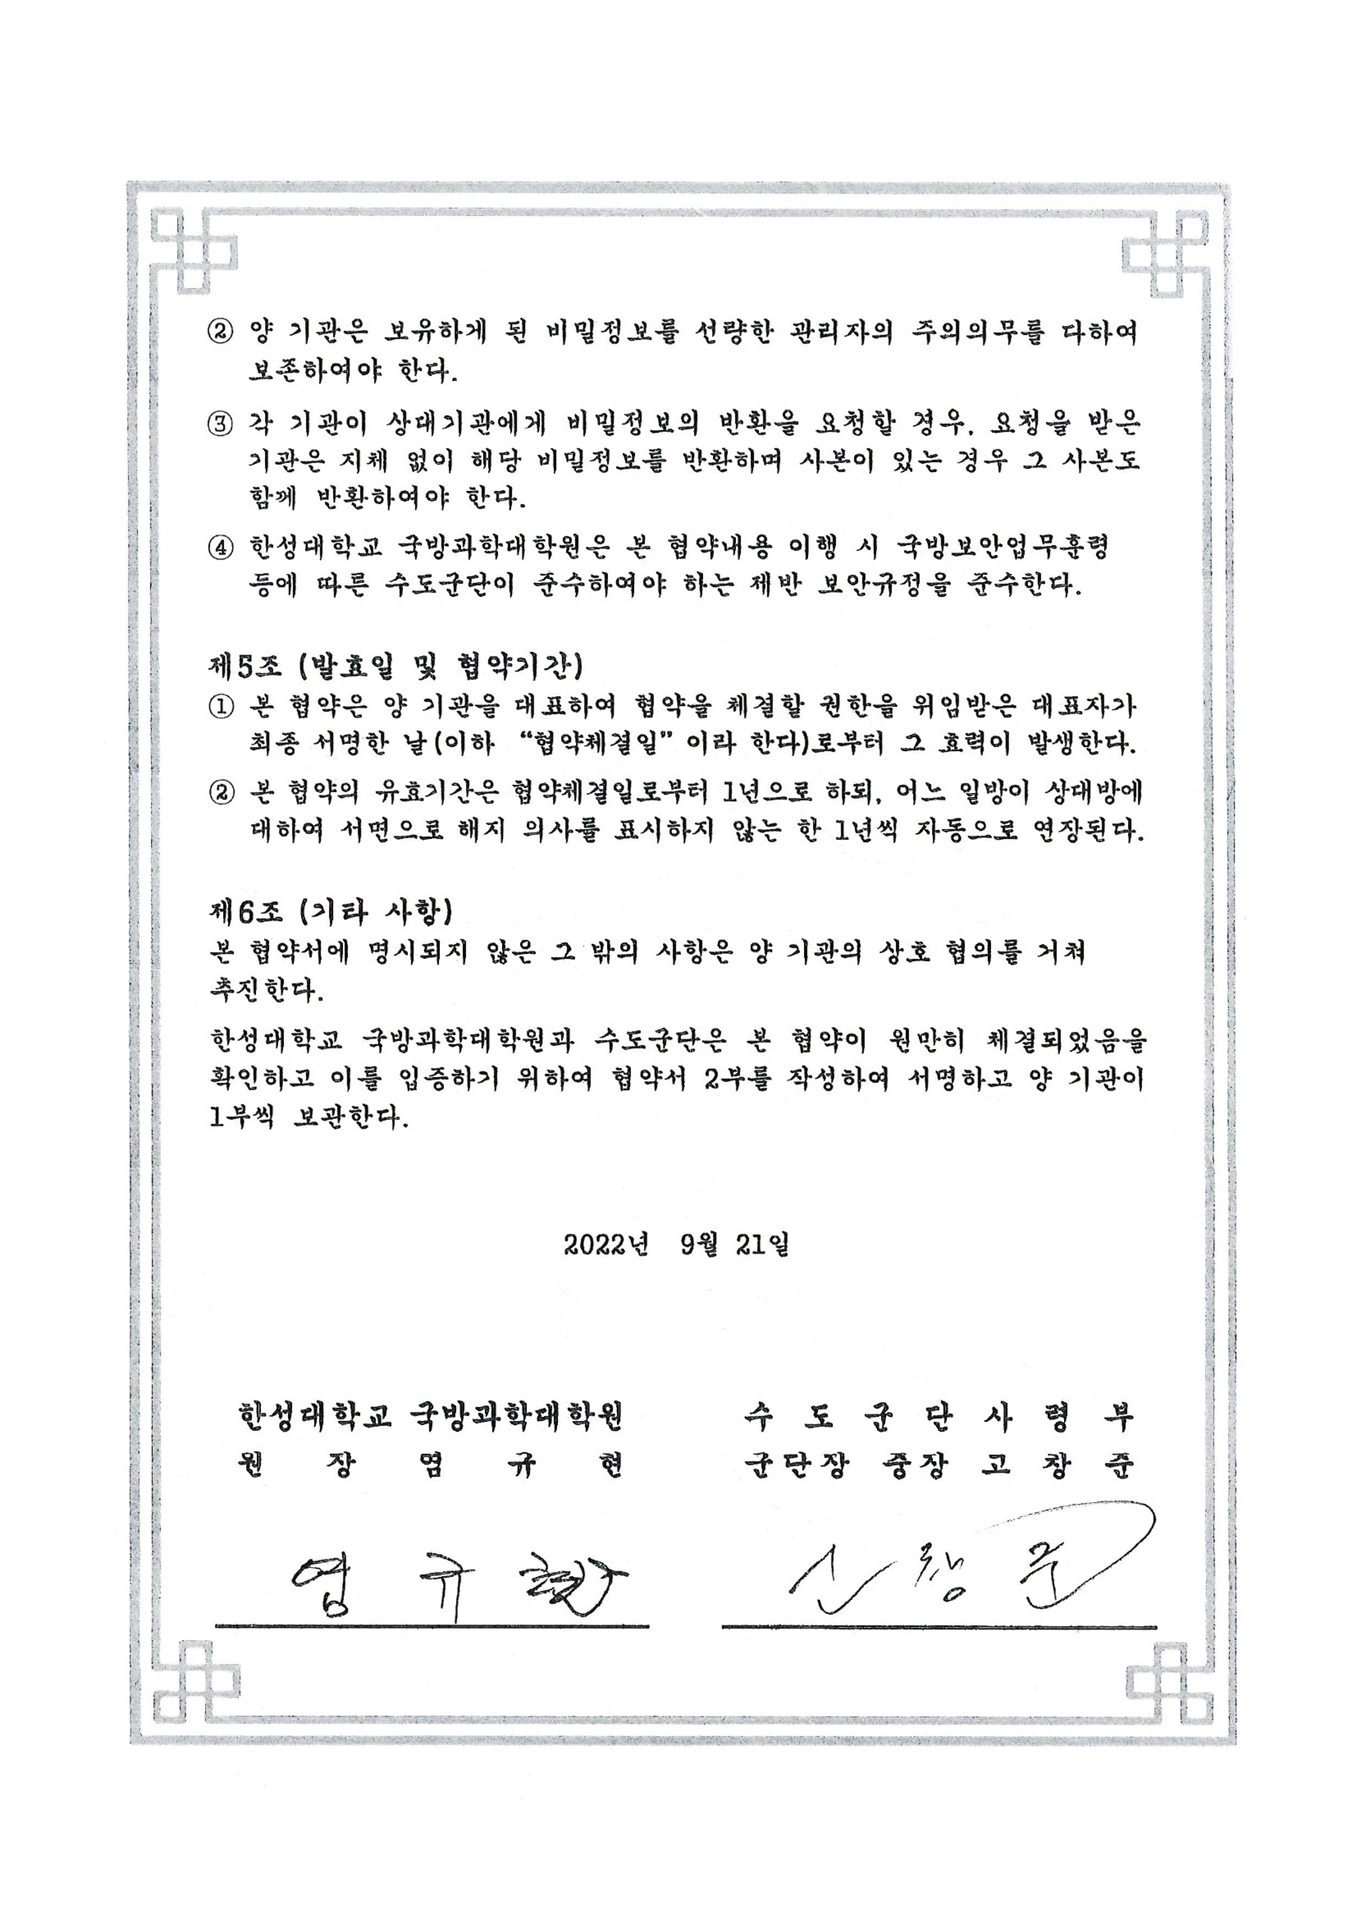 ② 양 기관은 보유하게 된 비밀정보를 선량한 관리자의 주의의무를 다하여
보존하여야 한다.
③ 각 기관이 상대기관에게 비밀정보의 반환을 요청할 경우, 요청을 받은
기관은 지체 없이 해당 비밀정보를 반환하며 사본이 있는 경우 그 사본도
함께 반환하여야 한다.
④ 한성대학교 국방과학대학원은 본 협약내용 이행 시 국방보안업무훈령
등에 따른 수도군단이 준수하여야 하는 제반 보안규정을 준수한다.
제5조 (발효일 및 협약기간)
① 본 협약은 양 기관을 대표하여 협약을 체결할 권한을 위임받은 대표자가
최종 서명한 날(이하 “협약체결일” 이라 한다)로부터 그 효력이 발생한다.
② 본 협약의 유효기간은 협약체결일로부터 1년으로 하되, 어느 일방이 상대방에
대하여 서면으로 해지 의사를 표시하지 않는 한 1년씩 자동으로 연장된다.
제6조 (기타 사항)
본 협약서에 명시되지 않은 그 밖의 사항은 양 기관의 상호 협의를 거쳐
추진한다.
한성대학교 국방과학대학원과 수도군단은 본 협약이 원만히 체결되었음을
확인하고 이를 입증하기 위하여 협약서 2부를 작성하여 서명하고 양 기관이
1부씩 보관한다.
2022년 9월 21일
한성대학교 국방과학대학원
원 장 염 규 현
염 규 현
수 도 군 단 사 령 부
군단장 중장 고 창 준
창 준